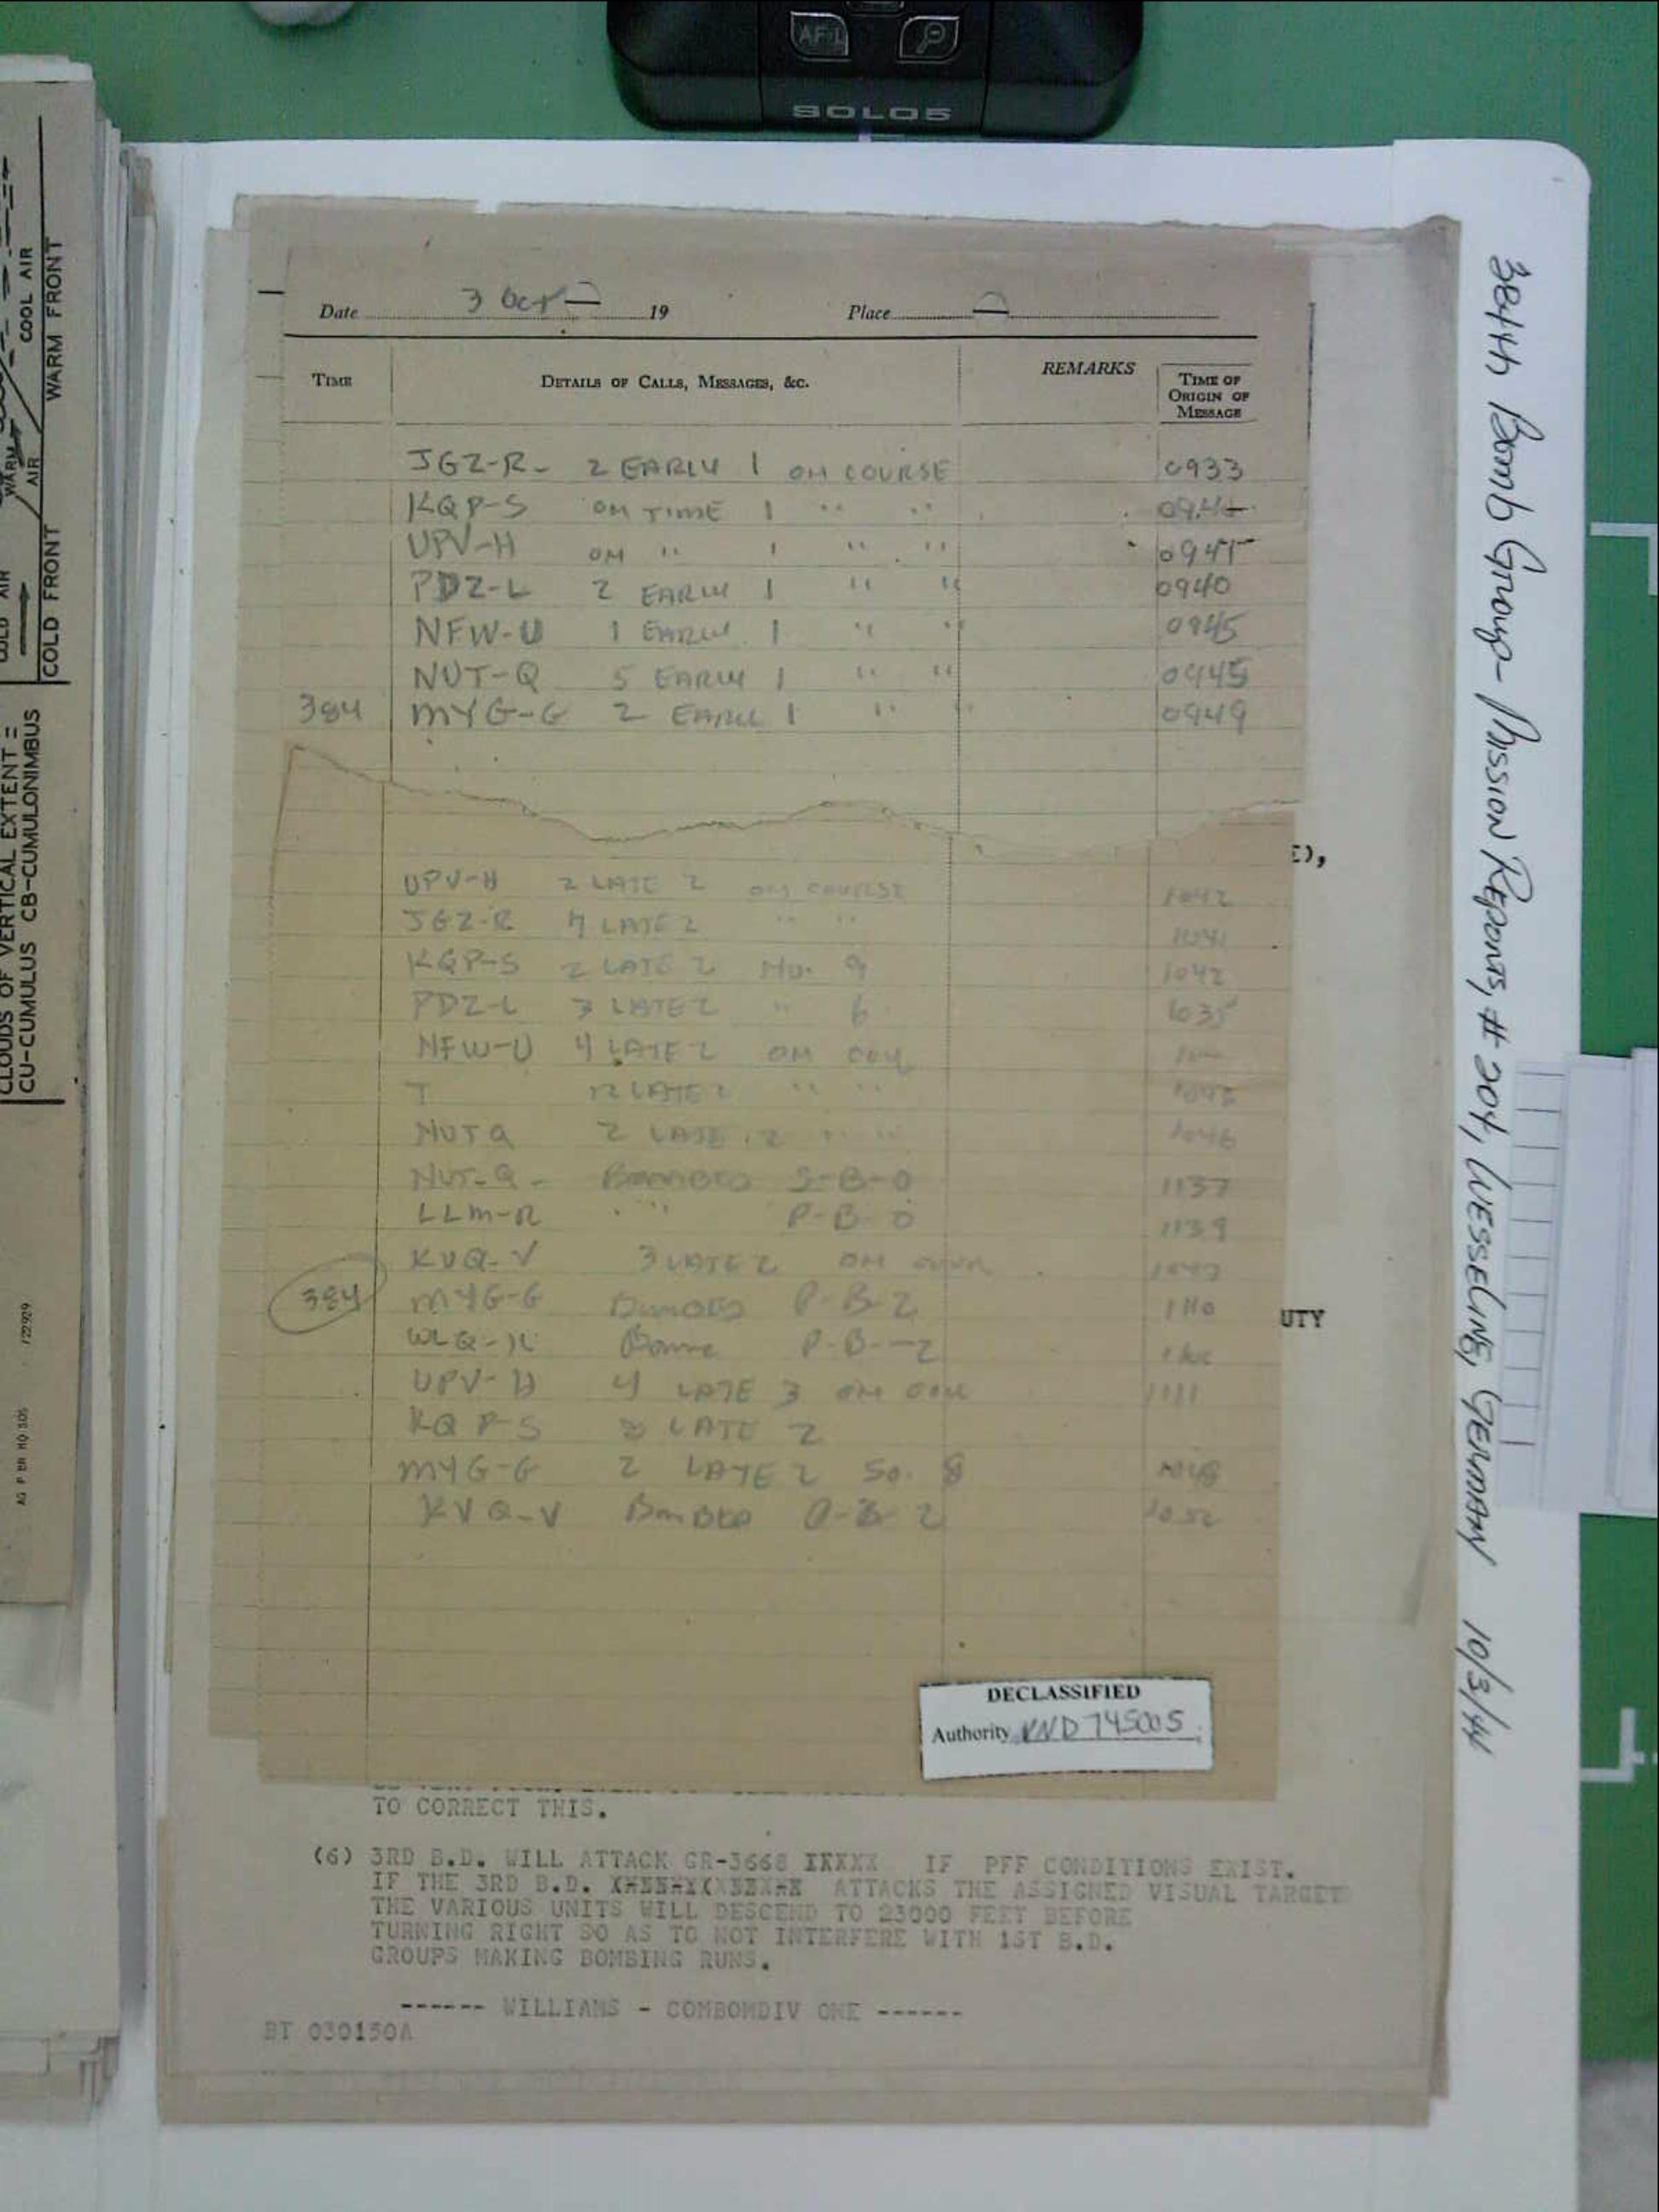 AF-L
SOLO5
COOL AIR
WARM
AIR
WARM FRONT
COLD FRONT
CLOUDS OF VERTICAL EXTENT =
CU-CUMULUS CB-CUMULONIMBUS
Date 3 Oct 19 Place
TIME DETAILS OF CALLS, MESSAGES, &c. REMARKS TIME OF ORIGIN OF MESSAGE
JGZ-R- 2 EARLY 1 ON COURSE 0933
KQP-S ON TIME 1 " "
UPV-H ON " 1 " " 0945
PDZ-L 2 EARLY 1 " " 0940
NFW-U 1 EARLY 1 " " 0945
NUT-Q 5 EARLY 1 " " 0945
384 MYG-G 2 EARLY 1 " " 0949
E),
UPV-H 2 LATE 2 ON COURSE 1042
JGZ-R 4 LATE 2 " " 1041
KQP-S 2 LATE 2 NO. 9 1042
PDZ-L 3 LATE 2 " 6 1035
NFW-U 4 LATE 2 ON COU
T 12 LATE 2 " "
NUT Q 2 LATE 2 " " 1046
NUT-Q- BOMBED S-B-O 1137
LLM-R " P-B-O 1139
KVQ-V 3 LATE 2 ON COUR
384 MYG-G BOMBED P-B-2 1110
P-B--2
UTY
UPV-H 4 LATE 3 ON COU 1111
KQP-S LATE 2
MYG-G 2 LATE 2 SO. 8 1048
KVQ-V BOMBED 1052
DECLASSIFIED
Authority NND 745005
TO CORRECT THIS.
(6) 3RD B.D. WILL ATTACK GR-3668 IF PFF CONDITIONS EXIST.
IF THE 3RD B.D. ATTACKS THE ASSIGNED VISUAL TARGET
THE VARIOUS UNITS WILL DESCEND TO 23000 FEET BEFORE
TURNING RIGHT SO AS TO NOT INTERFERE WITH 1ST B.D.
GROUPS MAKING BOMBING RUNS.
------ WILLIAMS - COMBOMDIV ONE ------
BT 030150A
384th Bomb Group- Mission Reports, # 204, WESSELING, GERMAN 10/3/44